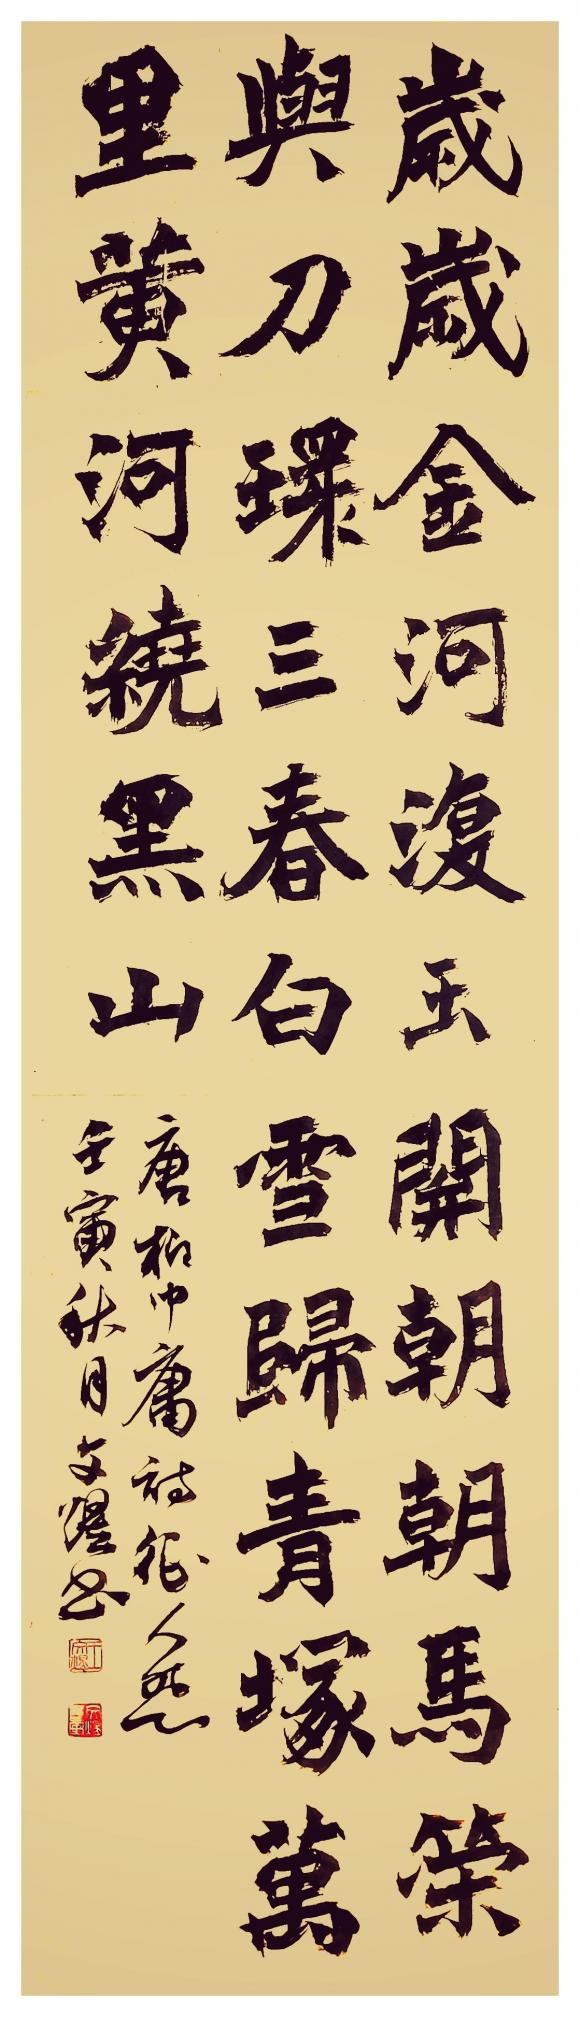 歲歲金河復玉開朝朝馬策
與刀環三春白雪歸青塚萬
里黃河繞黑山
唐柳中庸詩征人怨
壬寅秋月文煜书